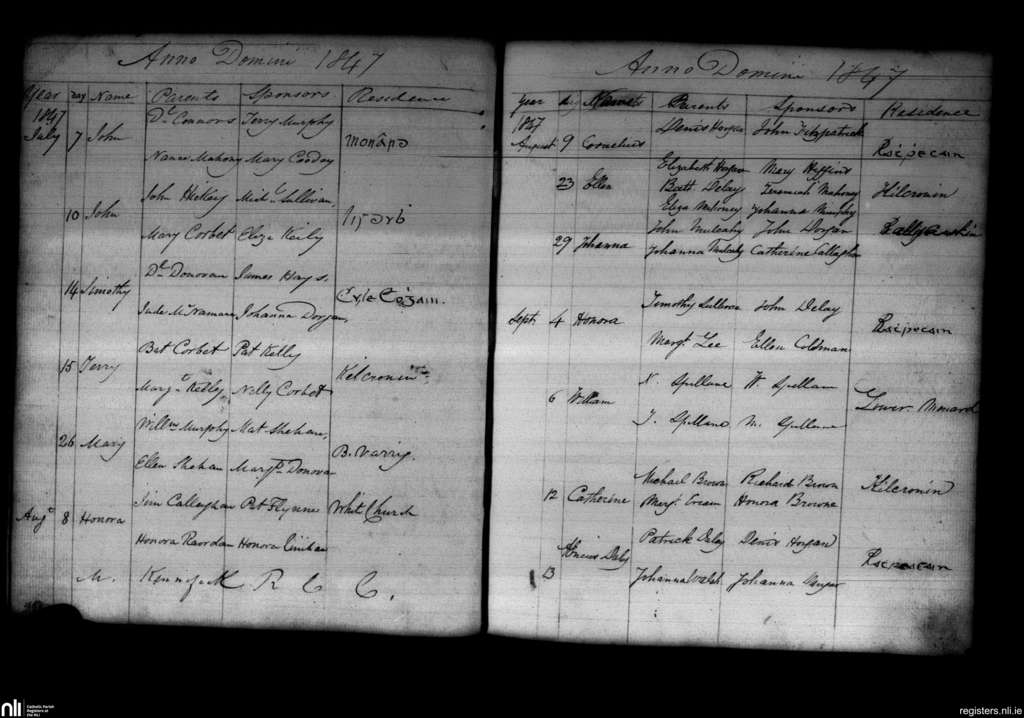 Anno Domini 1847
Year Day Name Parents Sponsors Residence
1847 Ds Connors Jerry Murphy
July 7 John
Nance Mahony Mary Cooday
John Hickey Micl Sullivan
10 John
Mary Corbet Eliza Keily
Dl Donovan James Hays
14 Timothy
Jude McNamara Johanna Dorgan
Bat Corbet Pat Kelly
15 Jerry Kilcronin
Margt Kelly Nelly Corbet
Willm Murphy Mat Shehan
26 Mary B. Varrig
Ellen Shehan Margt Donovan
Jim Callaghan Pat Flynne WhiteChurch
Augt 8 Honora
Honora Raordan Honora Linihan
M. R C C.
Anno Domini 1847
Year day Names Parents Sponsors Residence
1847 Denis Horgan John Fitzpatrick
August 9 Cornelius
Elizabeth Horgan Mary
23 Ellen Batt Delay Jeremiah Mahoney Kilcronin
Eliza Mahoney Johanna Murphy
John Mulcahy John Dorgan
29 Johanna
Johanna Mulcahy Catherine Callaghan
Timothy Sullivan John Delay
Sept. 4 Honora
Margt Lee Ellen Coldman
N. Spillane W. Spillane
6 William Lower Monard
J. Spillane M. Spillane
Michael Brown Richard Brown Kilcronin
12 Catherine Margt. Honora Browne
Patrick Delay Denis Horgan
Daly
13 Johanna Walsh Johanna
nli
Catholic Parish
Registers at
the NLI
registers.nli.ie